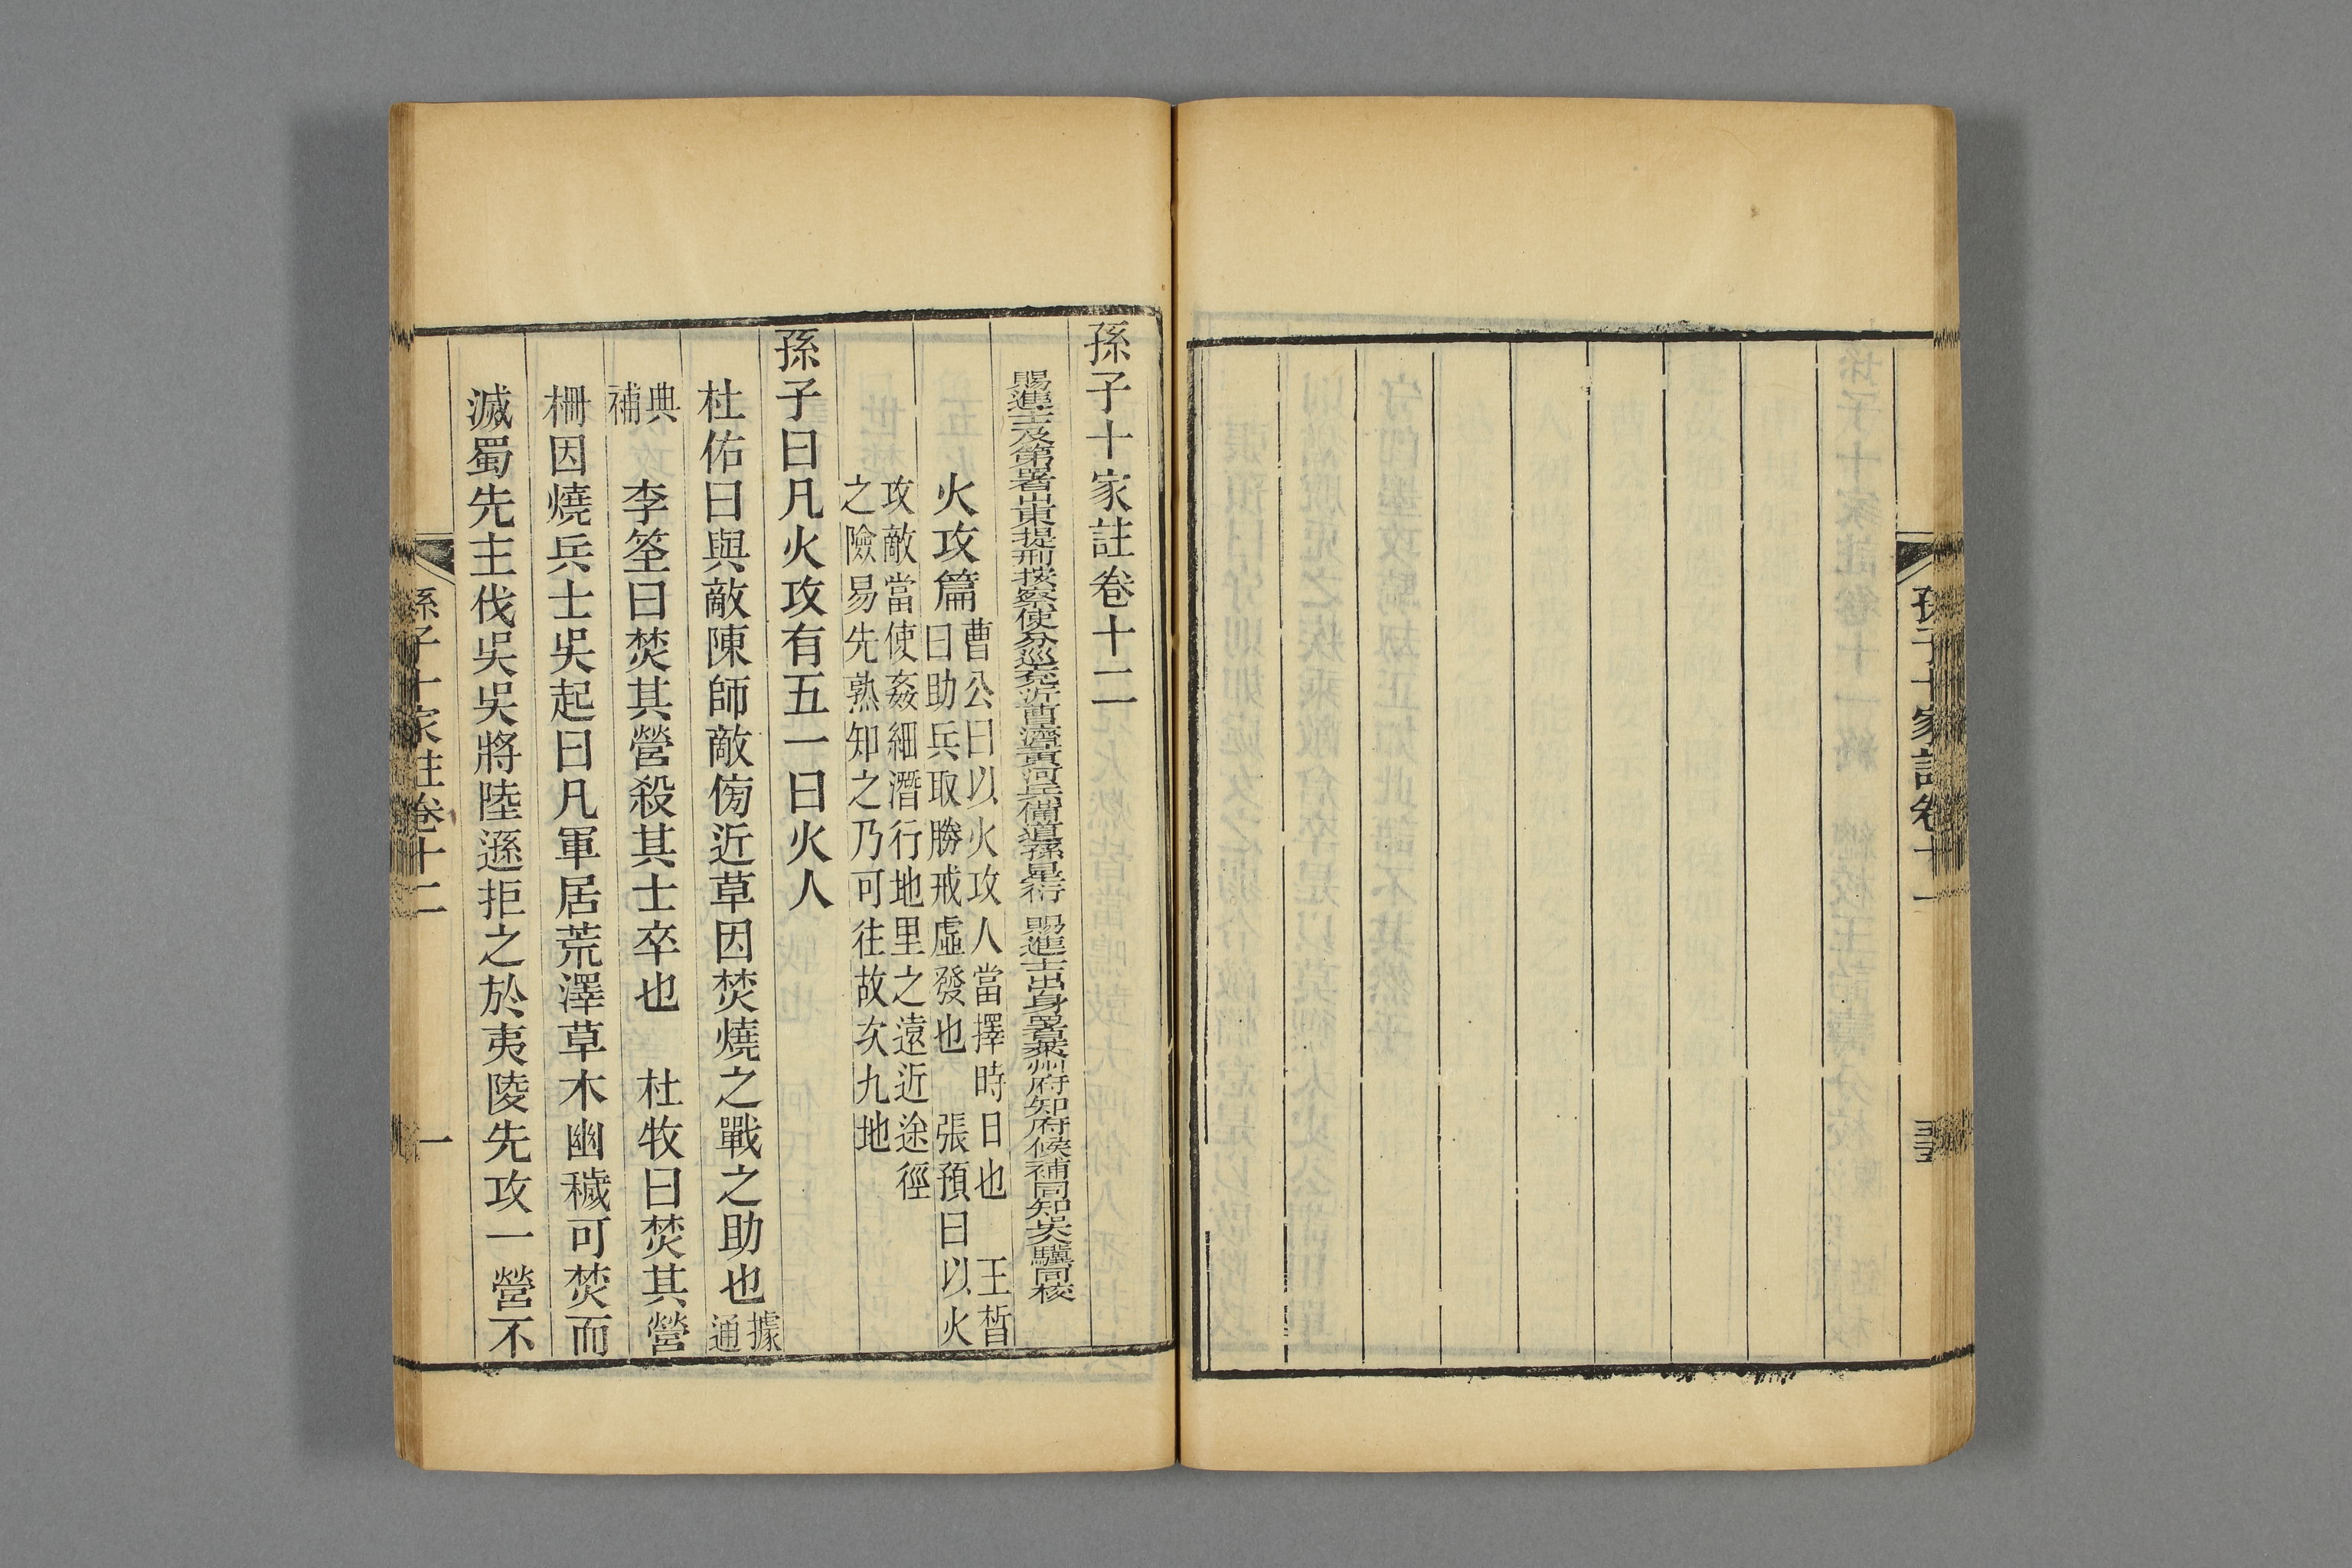 孫子十家註卷十一
孫子十家註卷十二
賜進士及第署山東提刑按察使分巡兗沂曹濟黃河兵備道孫星衍 賜進士出身署萊州府知府候補同知吳人驥同校
火攻篇 曹公曰以火攻人當擇時日也 王晳
曰助兵取勝戒虛發也 張預曰以火
攻敵當使姦細潛行地里之遠近途徑
之險易先熟知之乃可往故次九地
孫子曰凡火攻有五一曰火人
杜佑曰與敵陳師敵傍近草因焚燒之戰之助也 據通
典補 李筌曰焚其營殺其士卒也 杜牧曰焚其營
柵因燒兵士吳起曰凡軍居荒澤草木幽穢可焚而
滅蜀先主伐吳吳將陸遜拒之於夷陵先攻一營不
孫子十家註卷十二
一